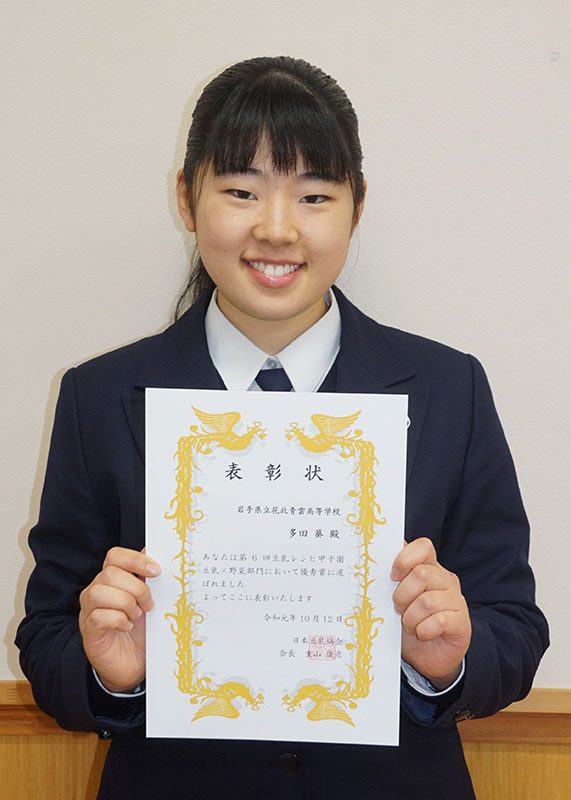 表彰状
岩手県立花北青雲高等学校
多田 葵 殿
あなたは第6回豆乳レシピ甲子園
豆乳×野菜部門において優秀賞に選
ばれました
よってここに表彰いたします
令和元年10月12日
日本豆乳協会
会長 重山 俊彦